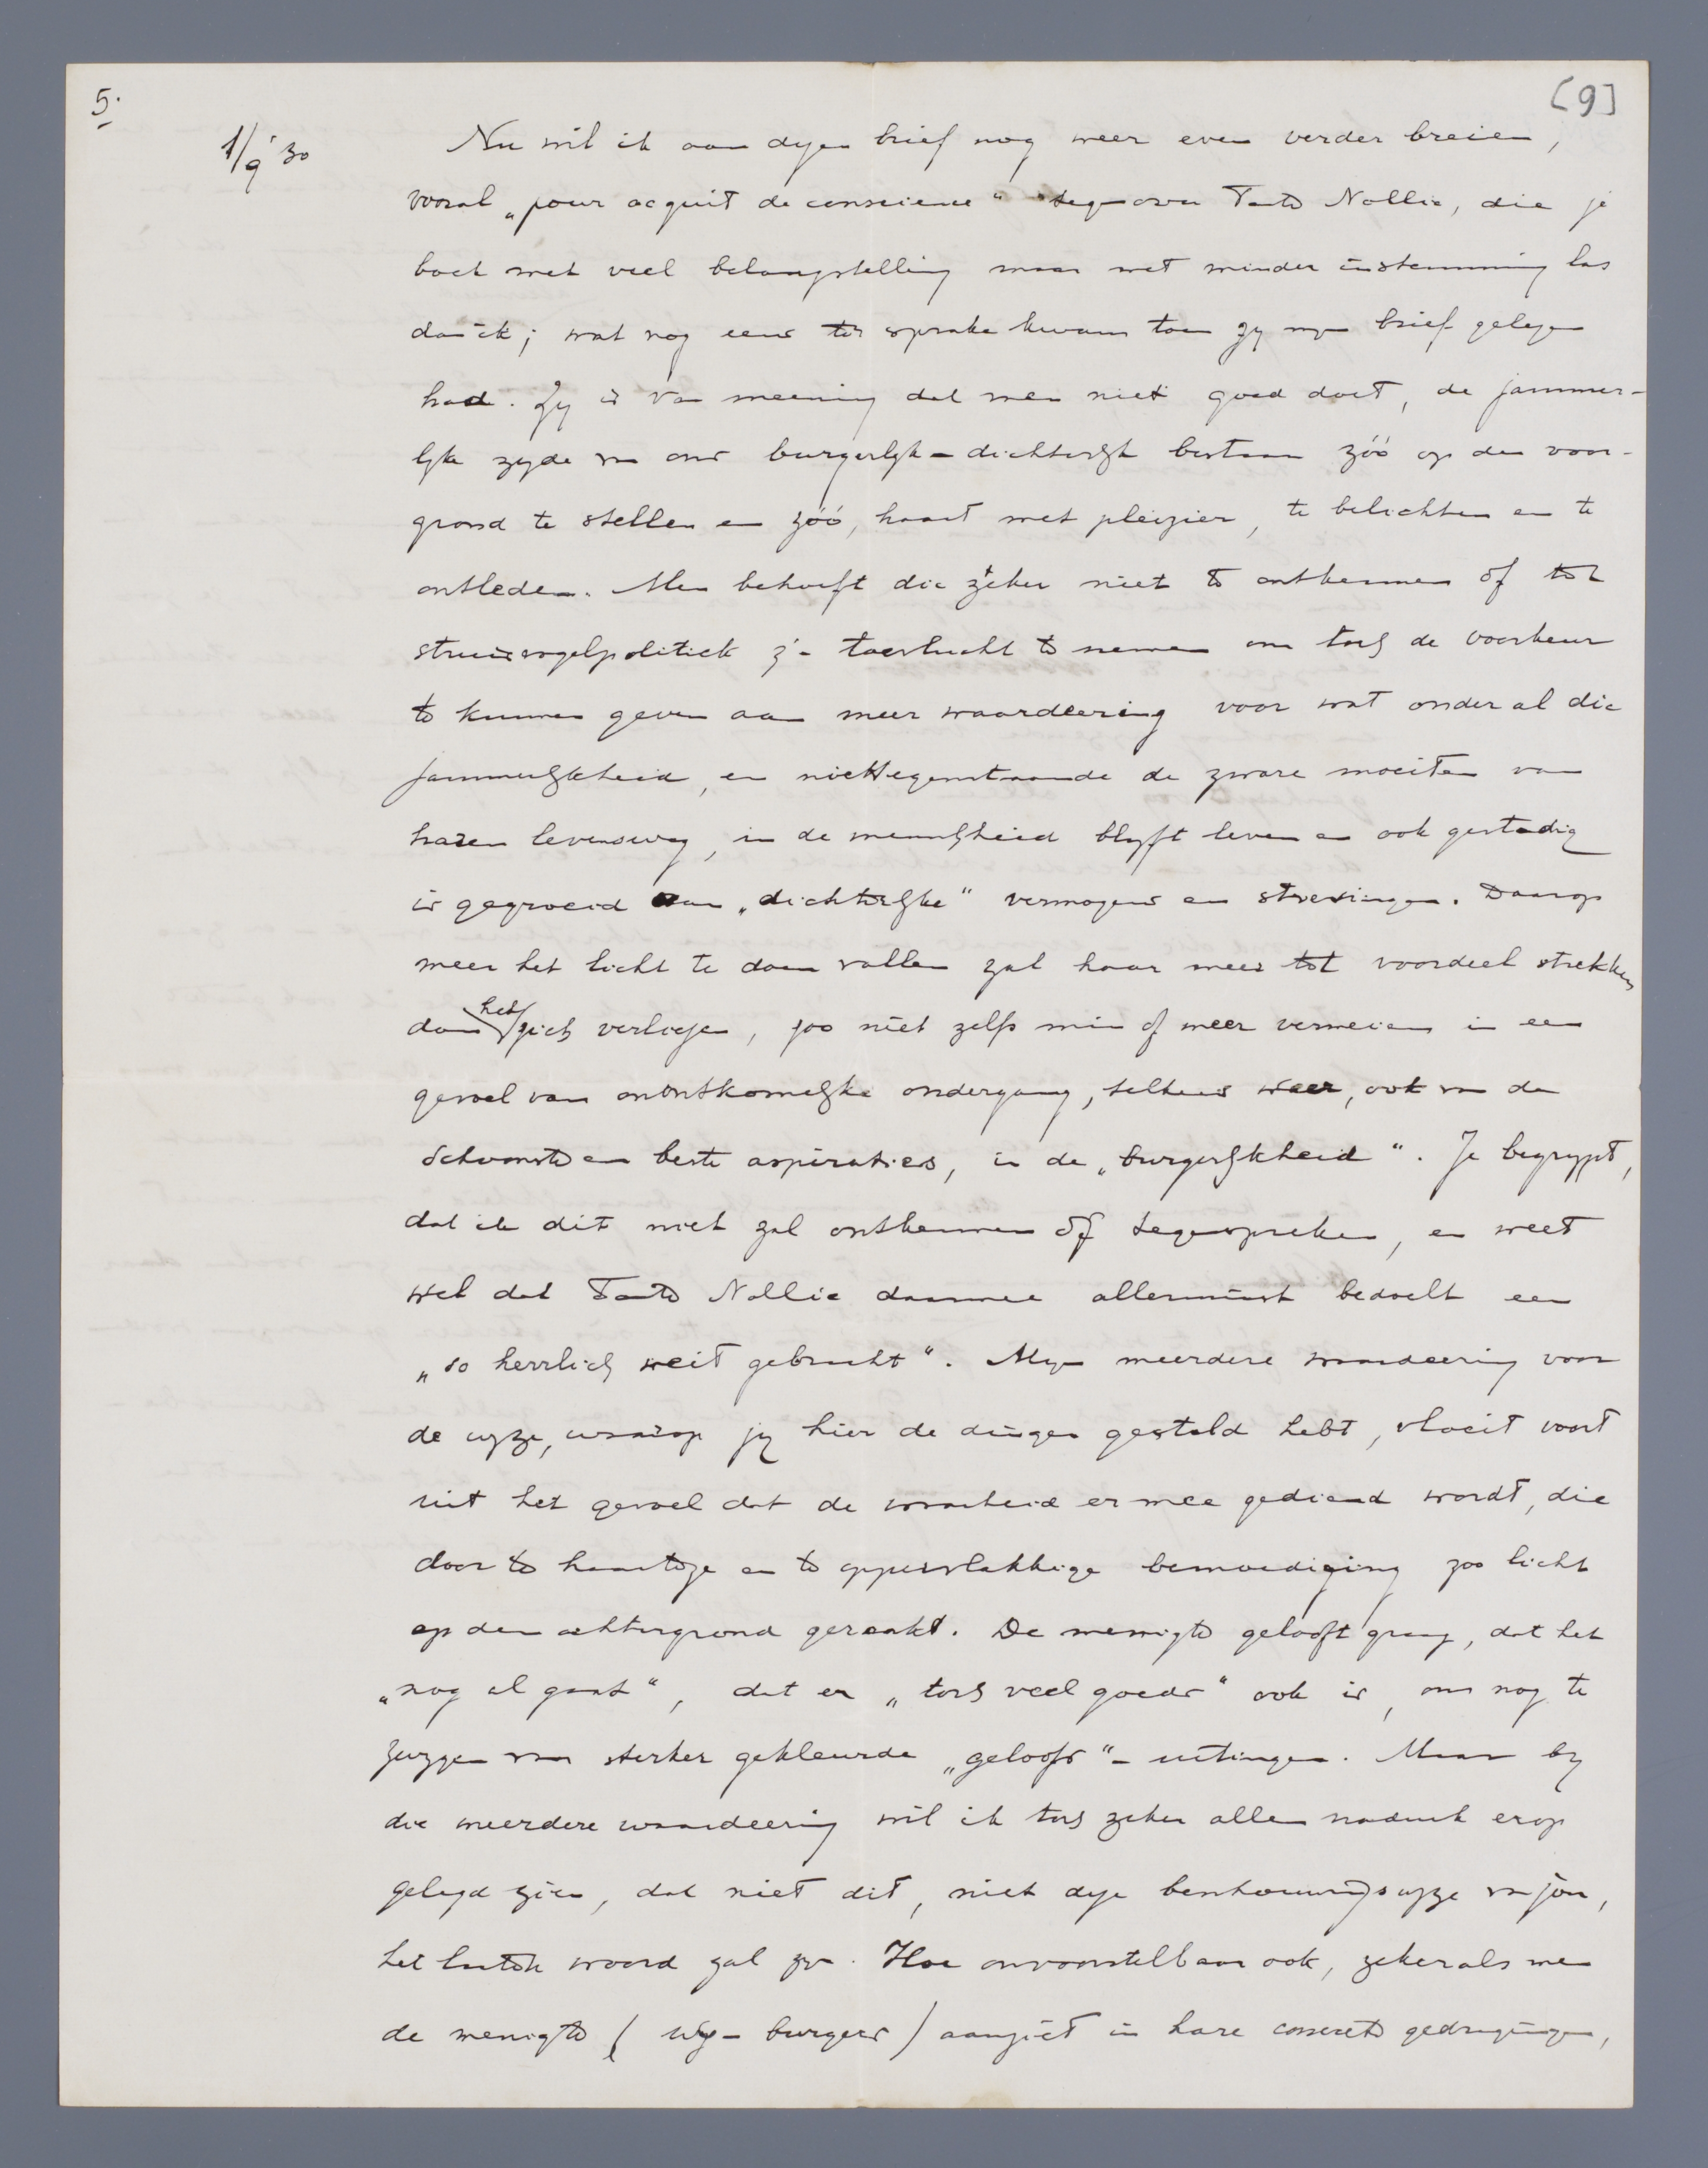 5.
[9]
1/9 '30
Nu wil ik aan dezen brief nog weer even verder breien,
vooral „pour acquit de conscience" tegenover Tante Nollie, die je
boek met veel belangstelling maar met minder instemming las
dan ik; wat nog eens ter sprake kwam toen zij mijn brief gelezen
had. Zij is van meening dat men niet goed doet, de jammer-
lijke zijde van ons burgerlijk-dichterlijk bestaan zóó op den voor-
grond te stellen en zóó, haast met pleizier, te belichten en te
ontleden. Men behoeft die zeker niet te ontkennen of tot
struisvogelpolitiek z'n toevlucht te nemen om toch de voorkeur
te kunnen geven aan meer waardeering voor wat onder al die
jammerlijkheid, en niettegenstaande de zware moeiten van
haren levensweg, in de menschheid blijft leven en ook gestadig
is gegroeid aan „dichterlijke" vermogens en strevingen. Daarop
meer het licht te doen vallen zal haar meer tot voordeel strekken
dan het zich verliezen, zoo niet zelfs min of meer vermeien in een
gevoel van onontkomelijke ondergang, telkens weer, ook van de
schoonste en beste aspiraties, in de „burgerlijkheid". Je begrijpt,
dat ik dit niet zal ontkennen òf tegenspreken, en weet
wel dat Tante Nollie daarmee allerminst bedoelt een
„so herrlich weit gebracht". Mijn meerdere waardeering voor
de wijze, waarop jij hier de dingen gesteld hebt, vloeit voort
uit het gevoel dat de waarheid er mee gediend wordt, die
door te haastige en te oppervlakkige bemoediging zoo licht
op den achtergrond geraakt. De menigte gelooft graag, dat het
„nog al gaat", dat er „toch veel goeds" ook is, om nog te
zwijgen van sterker gekleurde „geloofs"-uitingen. Maar bij
die meerdere waardeering wil ik toch zeker allen nadruk erop
gelegd zien, dat niet dit, niet deze beschouwingswijze van jou,
het laatste woord zal zijn. Hoe onvoorstelbaar ook, zeker als men
de menigte (wij-burgers) aanziet in hare concrete gedragingen,